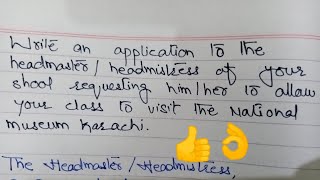 Write an application to the
headmaster/headmistress of your
shool requesting him/her to allow
your class to visit the National
museum Karachi.
The Headmaster/Headmistress,